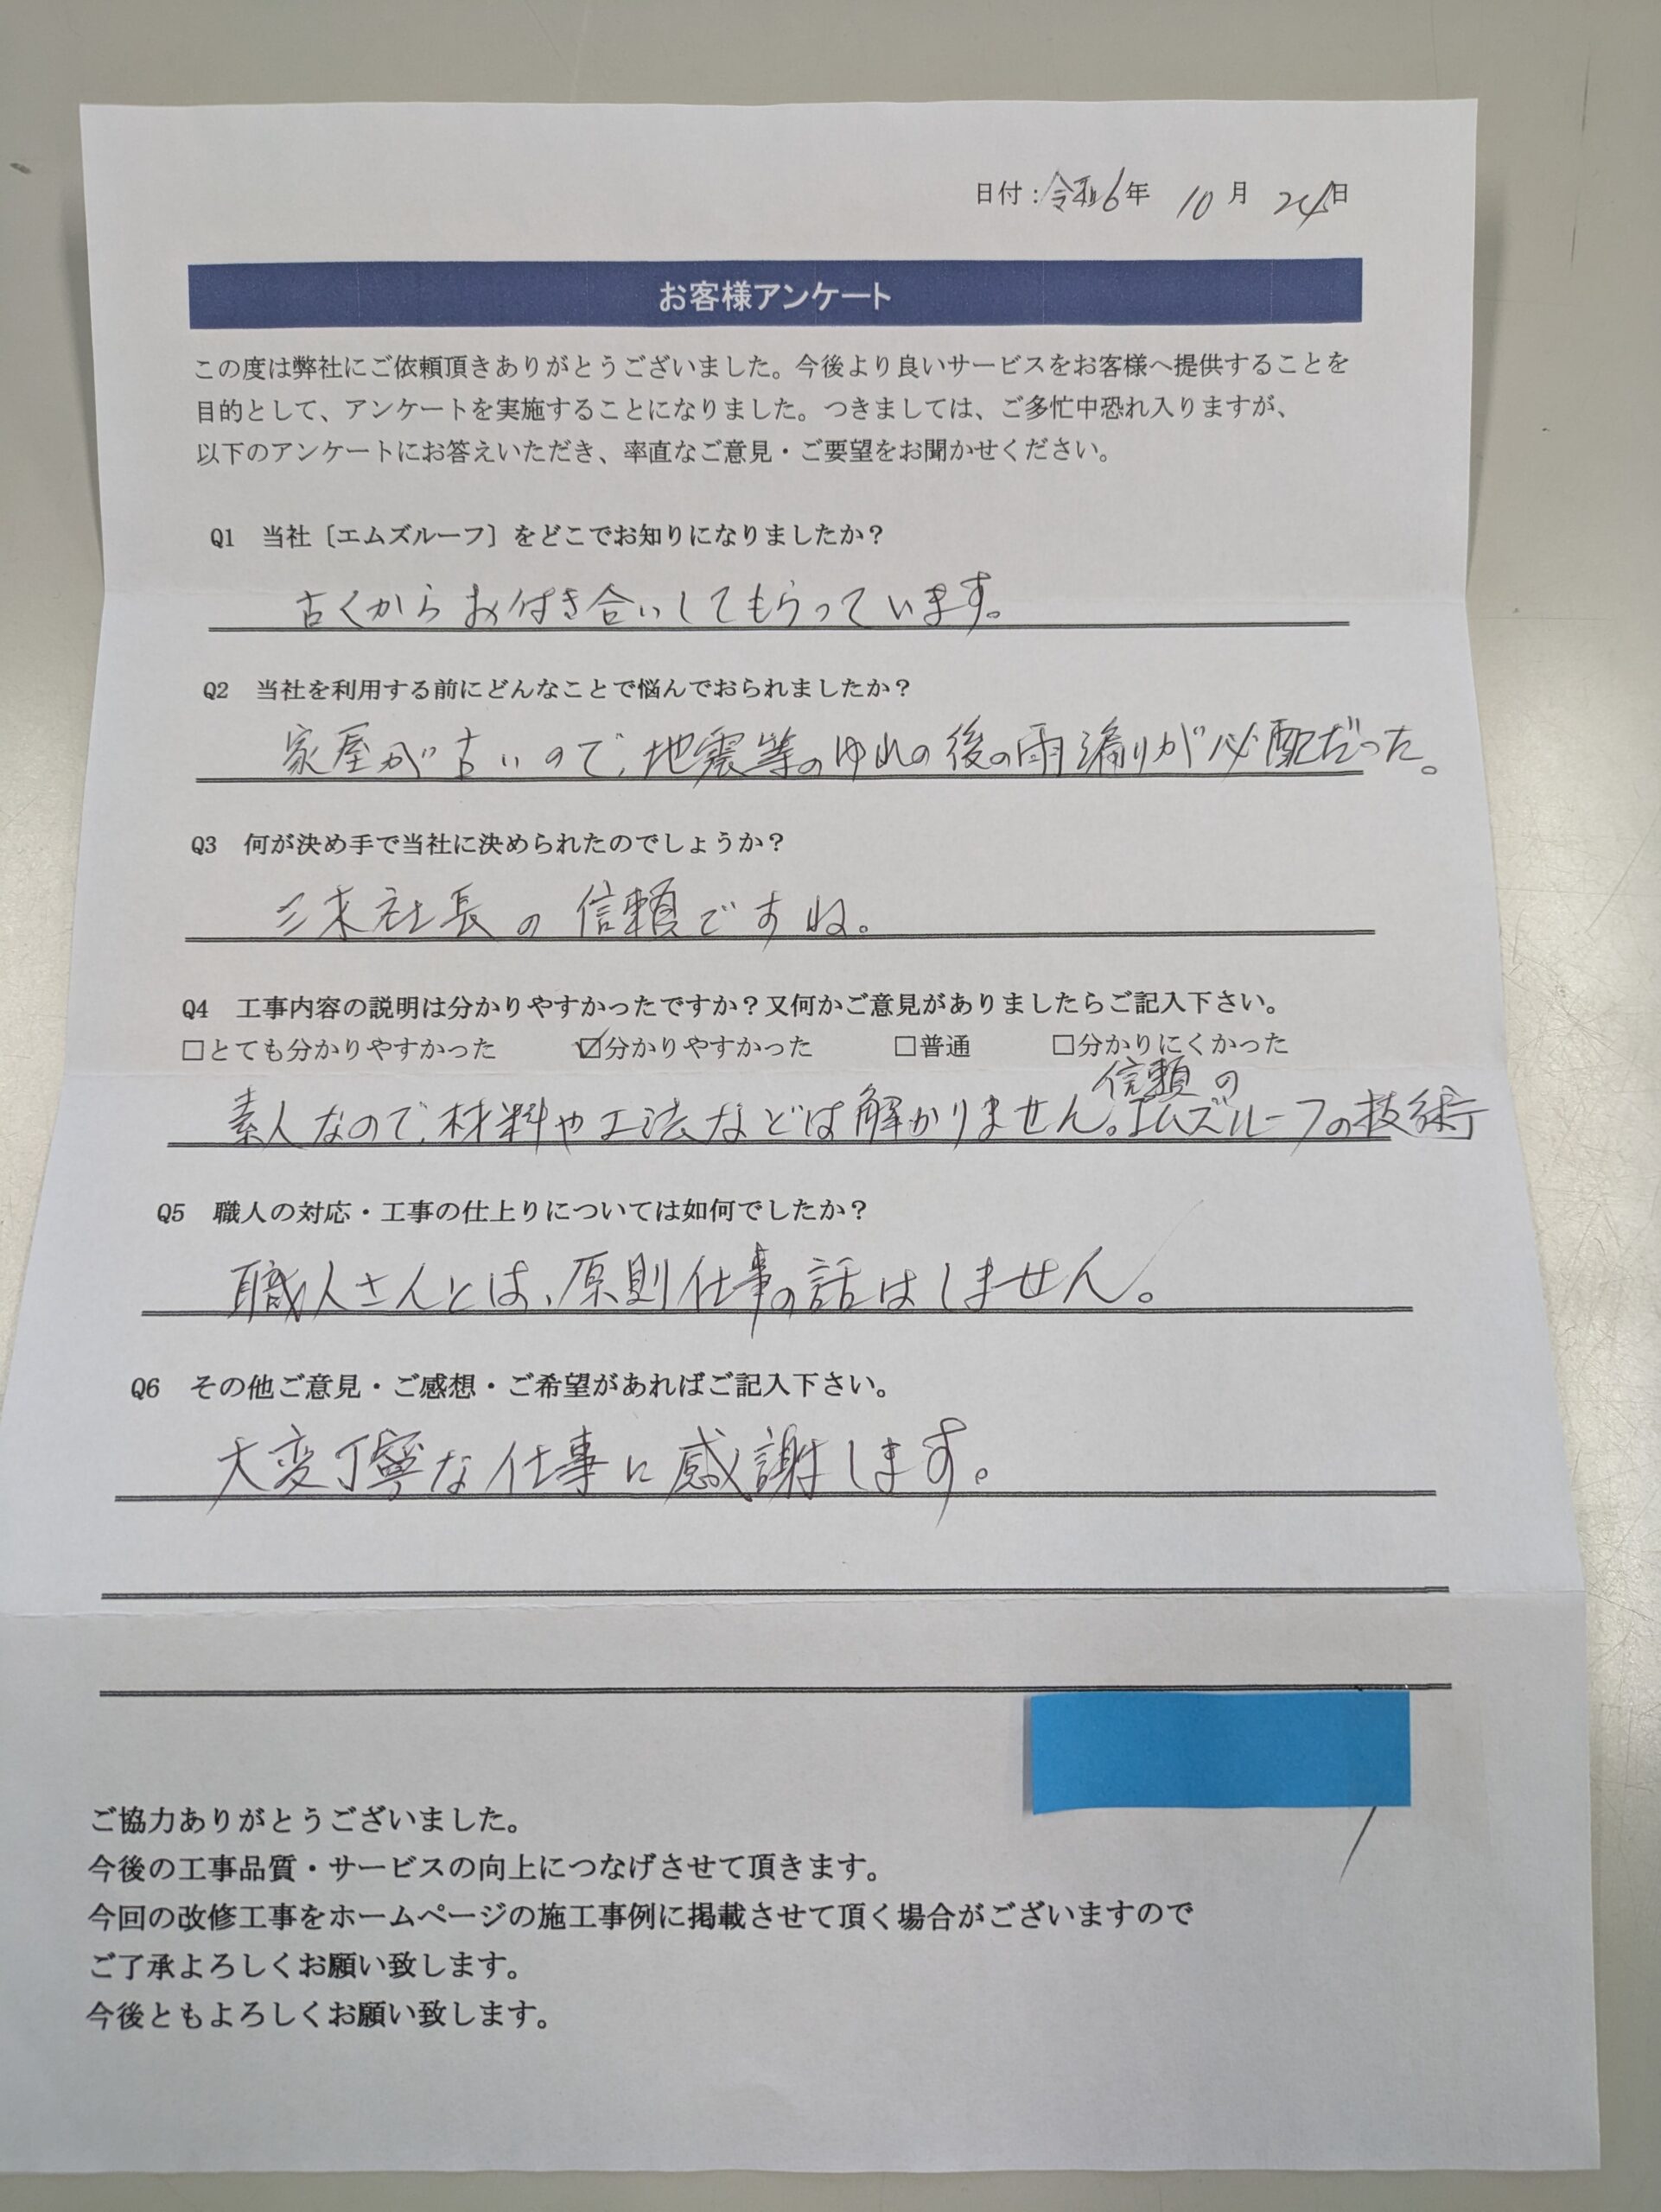 日付：令和6年 10月 24日
お客様アンケート
この度は弊社にご依頼頂きありがとうございました。今後より良いサービスをお客様へ提供することを
目的として、アンケートを実施することになりました。つきましては、ご多忙中恐れ入りますが、
以下のアンケートにお答えいただき、率直なご意見・ご要望をお聞かせください。
Q1 当社〔エムズルーフ〕をどこでお知りになりましたか？
古くからお付き合いしてもらっています。
Q2 当社を利用する前にどんなことで悩んでおられましたか？
家屋が古いので、地震等のゆれの後の雨漏りが心配だった。
Q3 何が決め手で当社に決められたのでしょうか？
社長の信頼ですね。
Q4 工事内容の説明は分かりやすかったですか？又何かご意見がありましたらご記入下さい。
□とても分かりやすかった ☑分かりやすかった □普通 □分かりにくかった
信頼の
素人なので、材料や工法などは解かりません。エムズルーフの技術
Q5 職人の対応・工事の仕上りについては如何でしたか？
職人さんとは、原則仕事の話はしません。
Q6 その他ご意見・ご感想・ご希望があればご記入下さい。
大変丁寧な仕事に感謝します。
ご協力ありがとうございました。
今後の工事品質・サービスの向上につなげさせて頂きます。
今回の改修工事をホームページの施工事例に掲載させて頂く場合がございますので
ご了承よろしくお願い致します。
今後ともよろしくお願い致します。